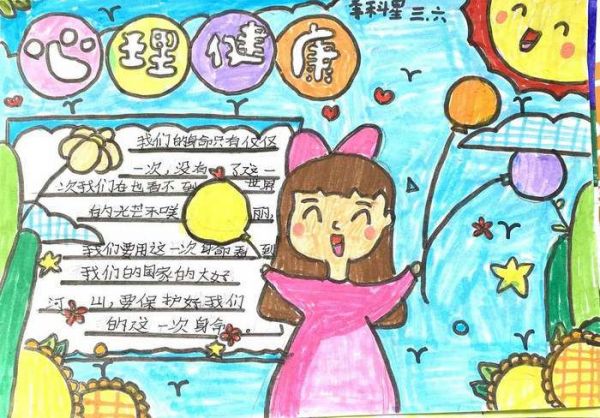 心理健康
科星 三.六
我们的身命只有仅仅
一次,没有了这一
次我们在也看不到世界
的光芒和丽,
我们要用这一次身命看到
我们的国家的大好
河山,要保护好我们
的这一次身命。